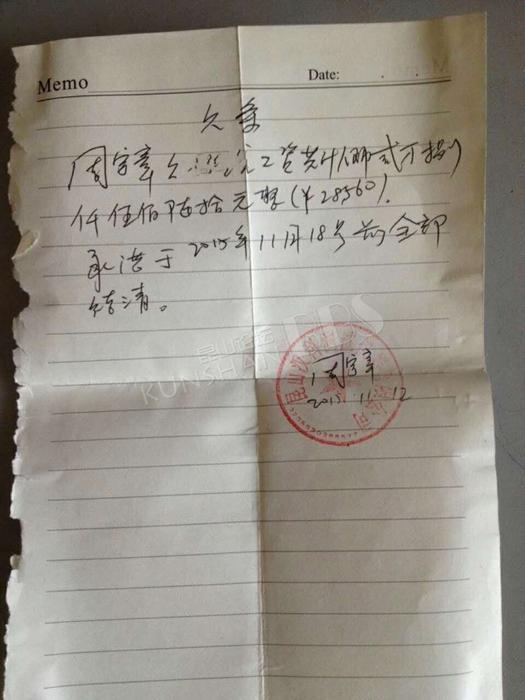 Memo Date: . . .
欠条
周宇章欠 工资共计人币贰万捌
仟伍佰陆拾元整(¥28560).
承诺于2015年11月18号前全部
结清。
昆山论坛 BBS
KUNSHAN
昆山 公司
周宇章
2015.11.12